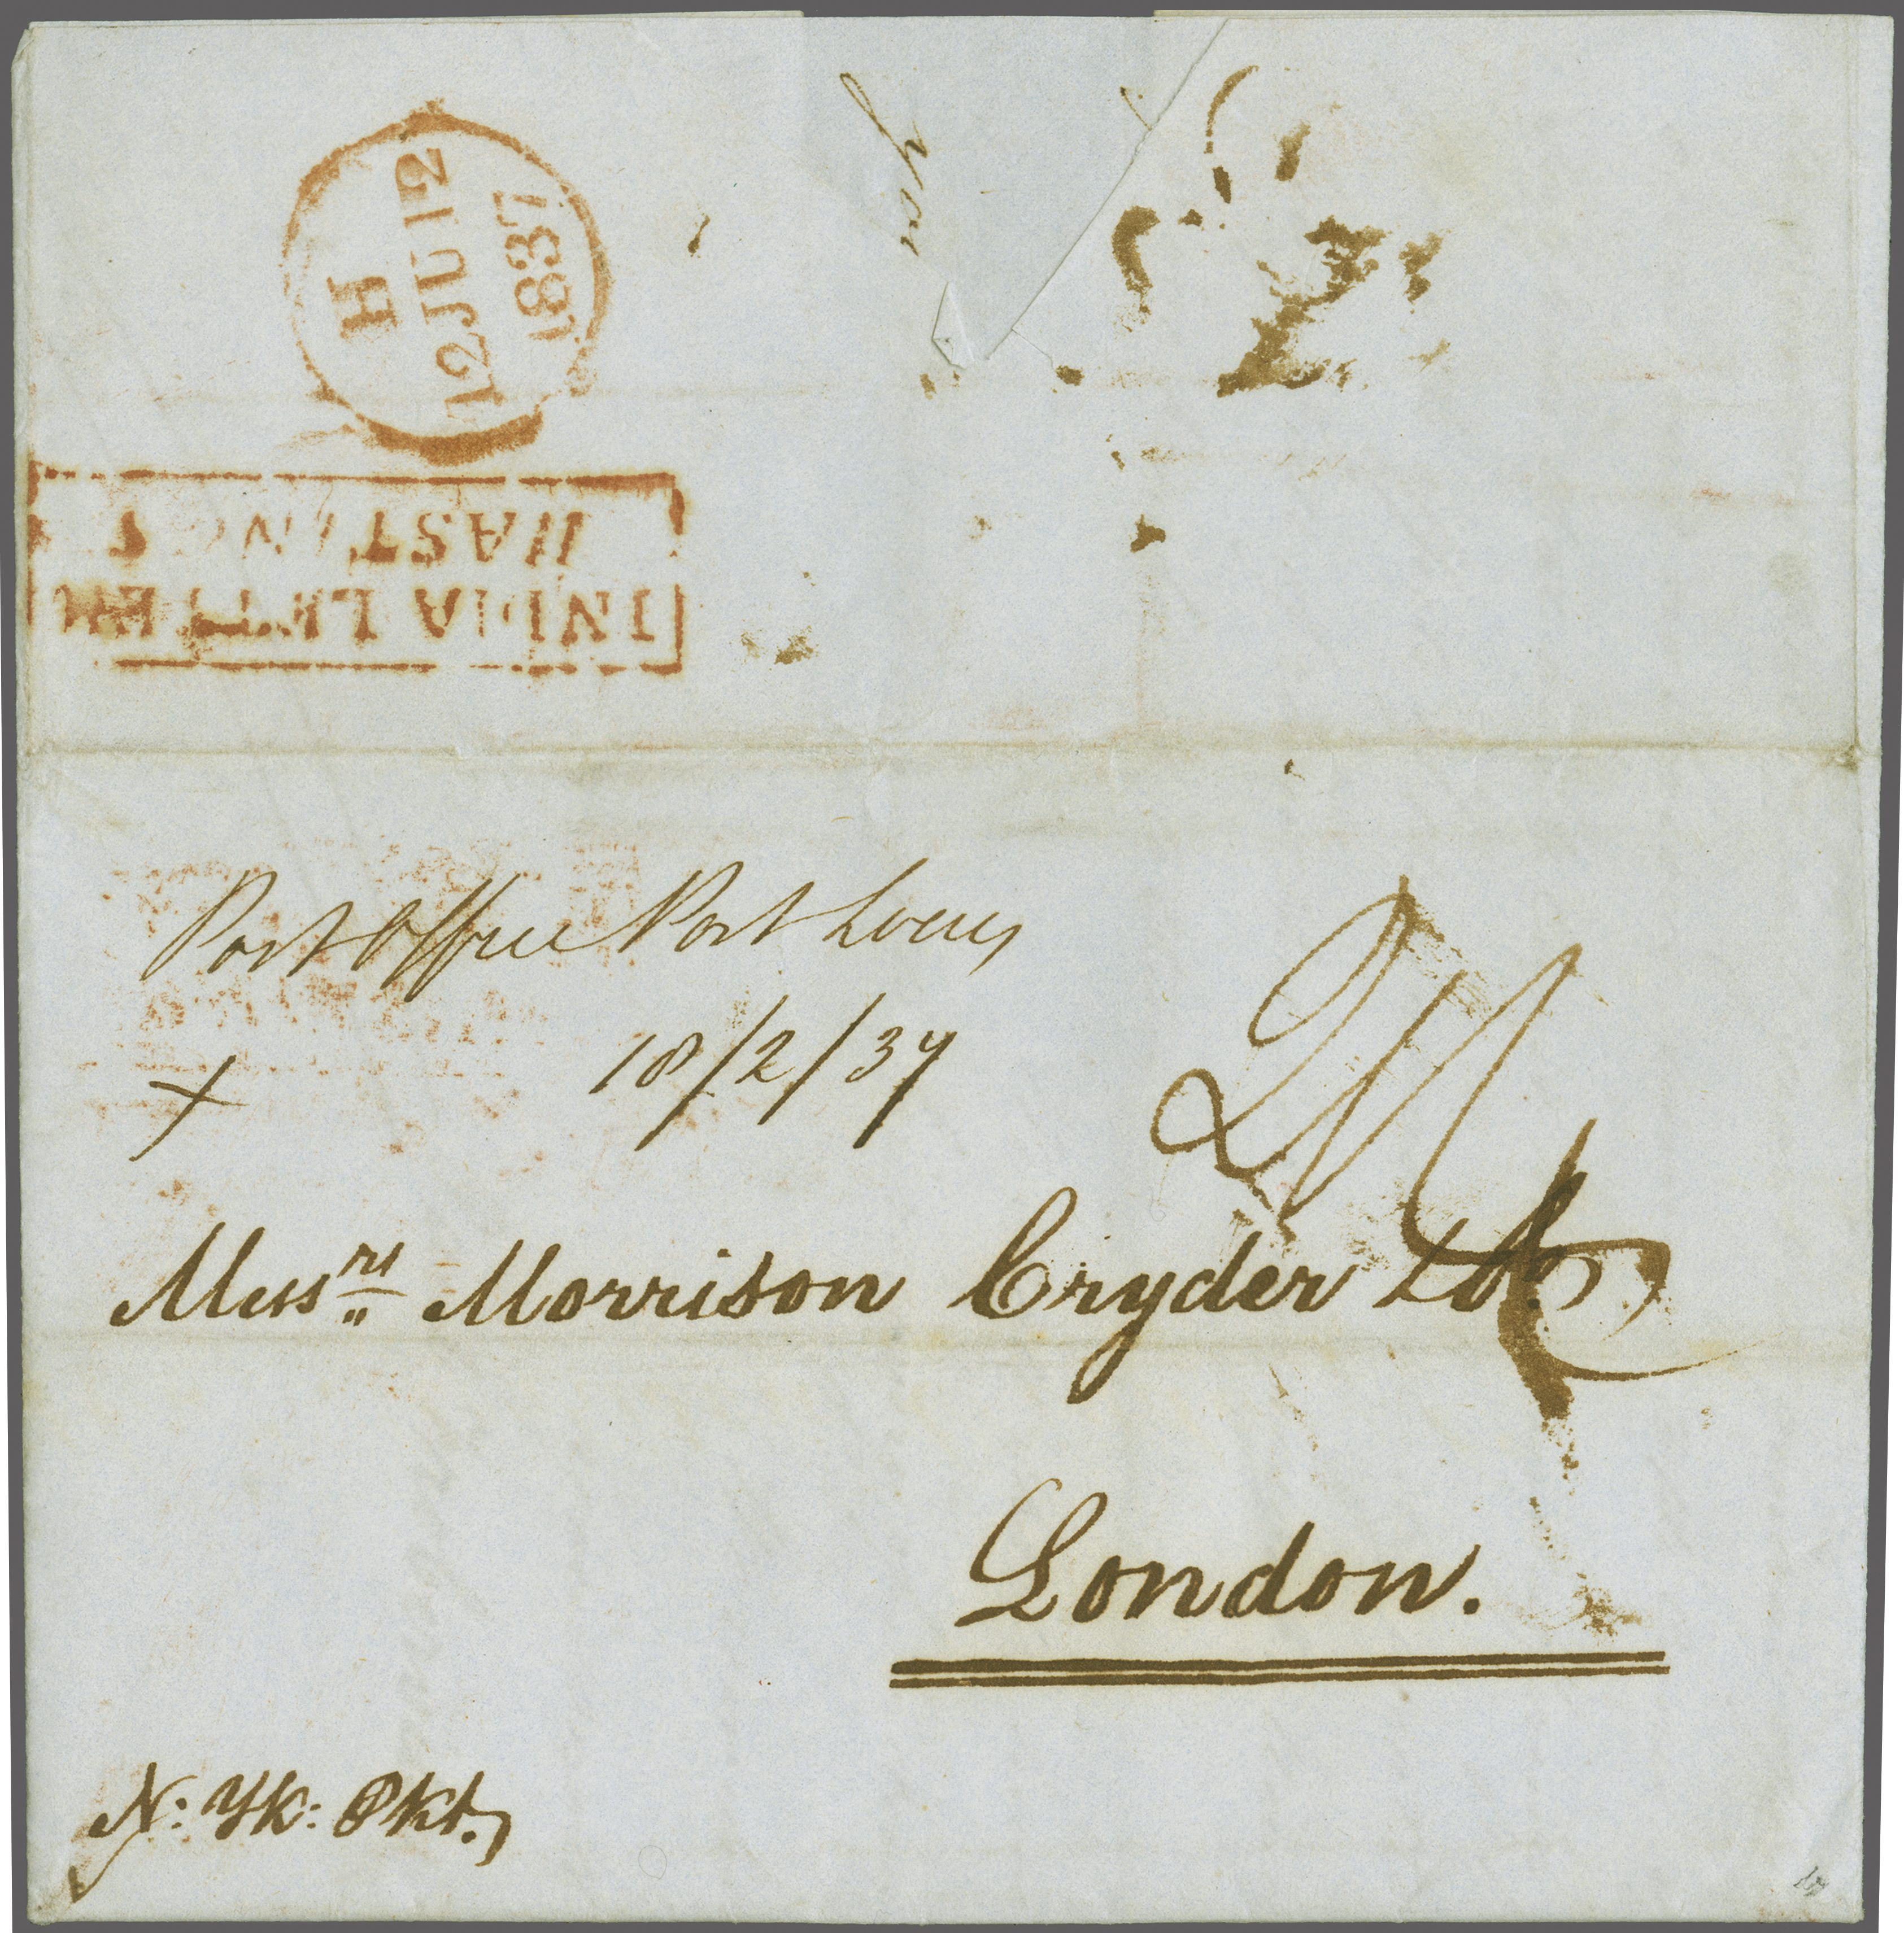 H
12 JU 12
1837
INDIA LETTER
HASTINGS
Post Office Port Louis
18/2/37
Mess^rs Morrison Cryder & Co
London.
N: Yk: Pkt.